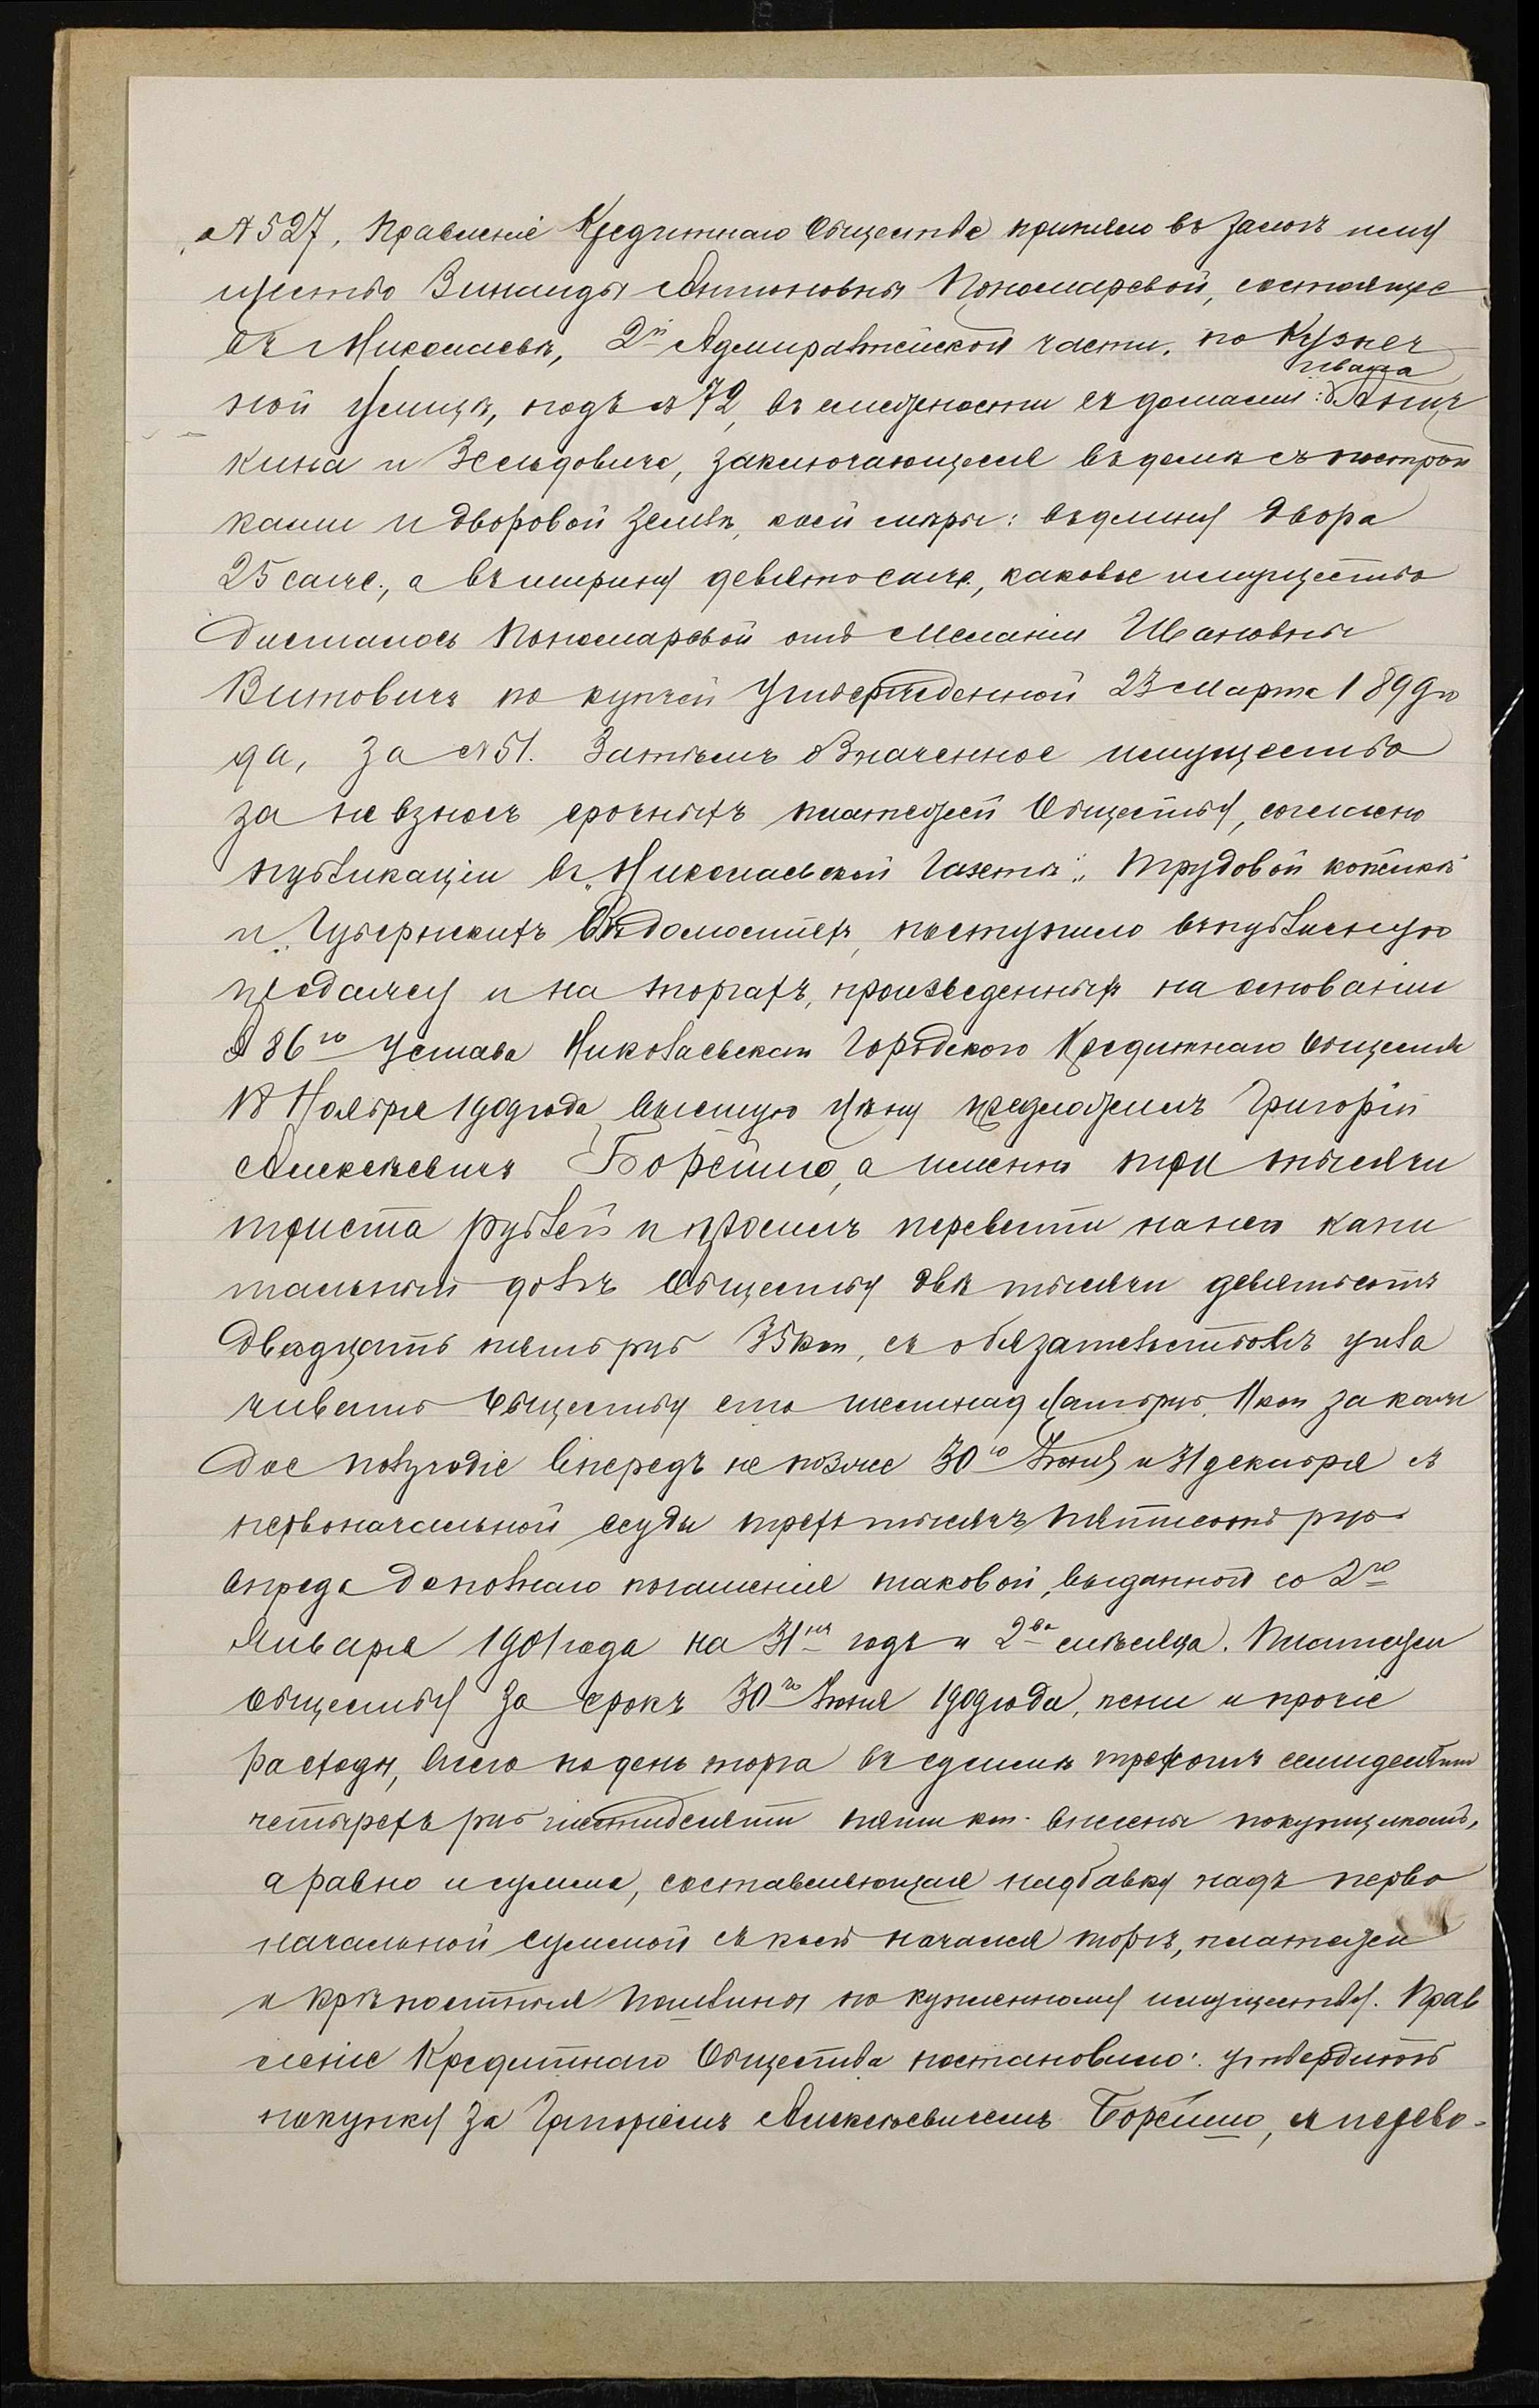 № 527, Правленіе Кредитнаго Общества приняло въ залогъ иму
щество Зинаиды Антоновны Пономаревой, состоящее
въ Николаевѣ, 2й Адмиралтейской части, по Кузнеч
ной улицѣ, подъ № 72, въ смежности съ домами: Анич
кина и Зельдовича, заключающееся въ домѣ съ построй
ками и дворовой землѣ, коей мѣры: въ длину двора
25 саж., а въ ширину девять саж., каковое имущество
досталось Пономаревой отъ Меланіи Ивановны
Витовичъ по купчей утвержденной 23 марта 1899 го
да, за № 51. Затѣмъ означенное имущество
за не взносъ срочныхъ платежей Обществу, согласно
публикаціи въ „Николаевской Газетѣ", „Трудовой копѣйкѣ"
и „Губернскихъ Вѣдомостяхъ, поступило въ публичную
продажу и на торгахъ, произведенныхъ на основаніи
§ 86го Устава Николаевскаго Городского Кредитнаго Общества
18 Ноября 1909 года, высшую цѣну предложилъ Григорій
Алексѣевичъ Борейшо, а именно три тысячи
триста рублей и просилъ перевести на него капи
тальный долгъ Обществу двѣ тысячи девятьсотъ
двадцать пять руб 35 коп, съ обязательствомъ упла
чивать Обществу сто шестнадцать руб. 11 коп за каж
дое полугодіе впередъ не позже 30го Іюня и 31 декабря съ
первоначальной ссуды трехъ тысячъ пятисотъ руб
впредь до полнаго погашенія таковой, выданной со 2го
Января 1901 года на 31нъ годъ и 2ва мѣсяца. Платежи
Обществу за срокъ 30го Іюня 1909 года, пени и прочіе
расходы, всего по день торга въ суммѣ трехсотъ семидесяти
четырехъ руб шестидесяти пяти коп. внесены покупщикомъ,
а равно и сумма, составляющая надбавку надъ перво
начальной суммой съ коей начался торгъ, платежи
и крѣпостныя пошлины по купленному имуществу. Прав
леніе Кредитнаго Общества постановило: утвердить
покупку за Григоріемъ Алексѣевичемъ Борейшо, съ перево-